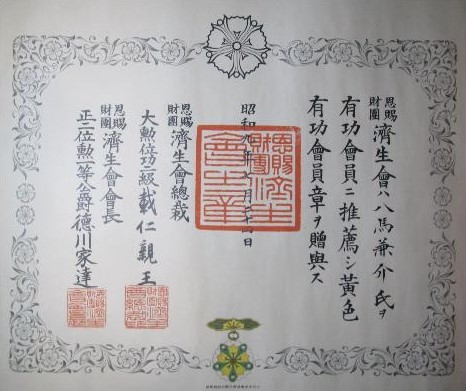 恩賜財團濟生會ハ八馬兼介氏ヲ
有功會員ニ推薦シ黃色
有功會員章ヲ贈與ス
昭和九年 月 日
恩賜財團濟生會總裁
大勲位功一級載仁親王
恩賜財團濟生會會長
正二位勲一等公爵德川家達
恩賜財團濟生會之章